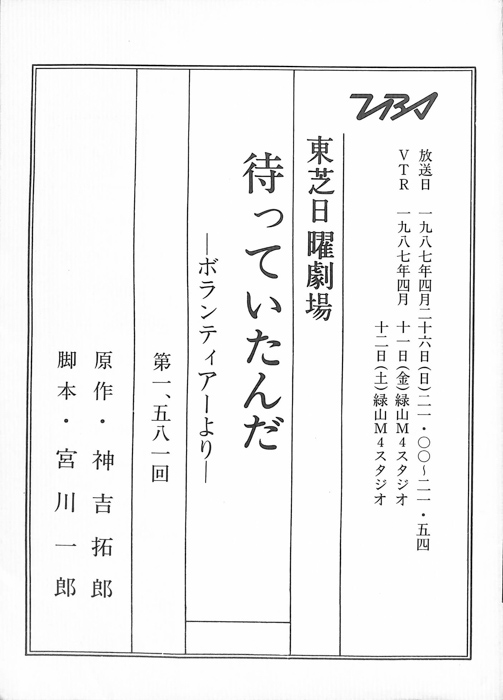 TBS
放送日　一九八七年四月二十六日(日)二一・〇〇〜二一・五四
VTR　一九八七年四月　十一日(金)緑山M4スタジオ
十二日(土)緑山M4スタジオ
東芝日曜劇場
待っていたんだ
―ボランティアーより―
第一、五八一回
原作・神吉拓郎
脚本・宮川一郎